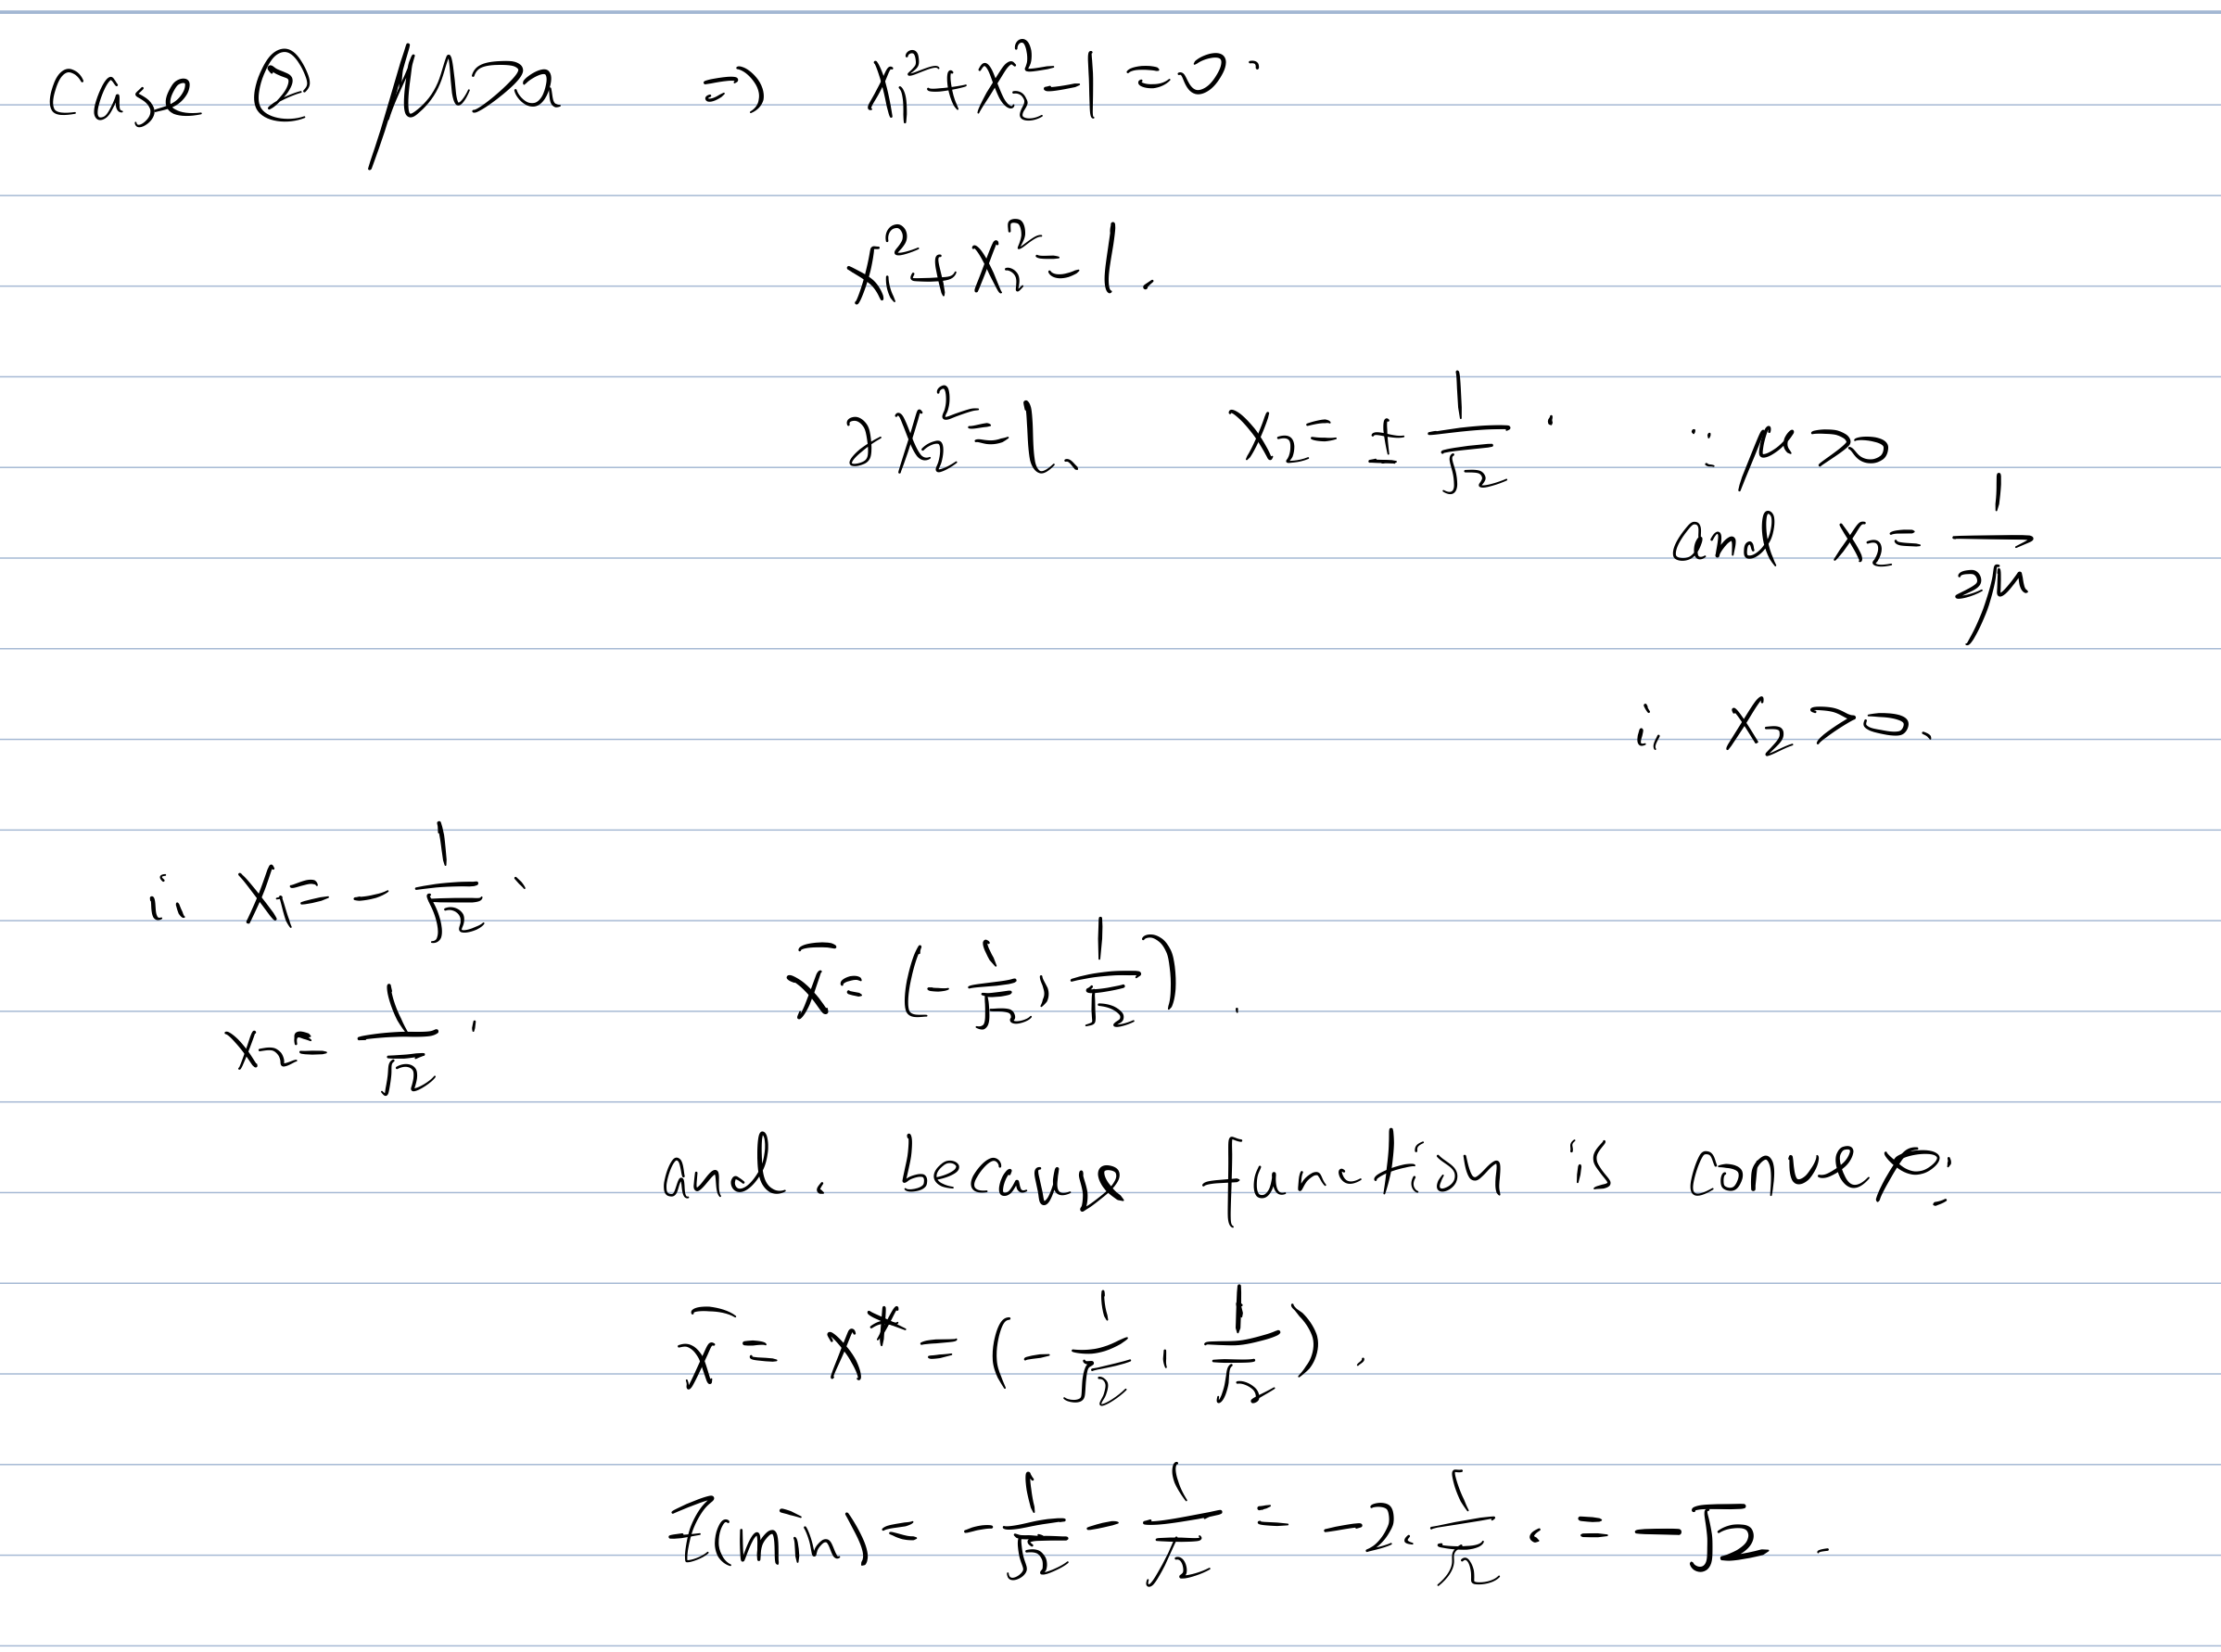 case ② μ>0 ⇒ x₁²+x₂²-1=0.
x₁²+x₂²=1.
2x₂²=1. x₂=± 1/√2. ∵ μ>0
and x₂= 1/2μ
∴ x₂>0.
∴ x₁= - 1/√2.
x₂= 1/√2. x̄= (- 1/√2, 1/√2).
and, because function is convex.
x̄= x*= (- 1/√2, 1/√2).
Z(min)= - 1/√2 - 1/√2 = -2· 1/√2. = -√2.